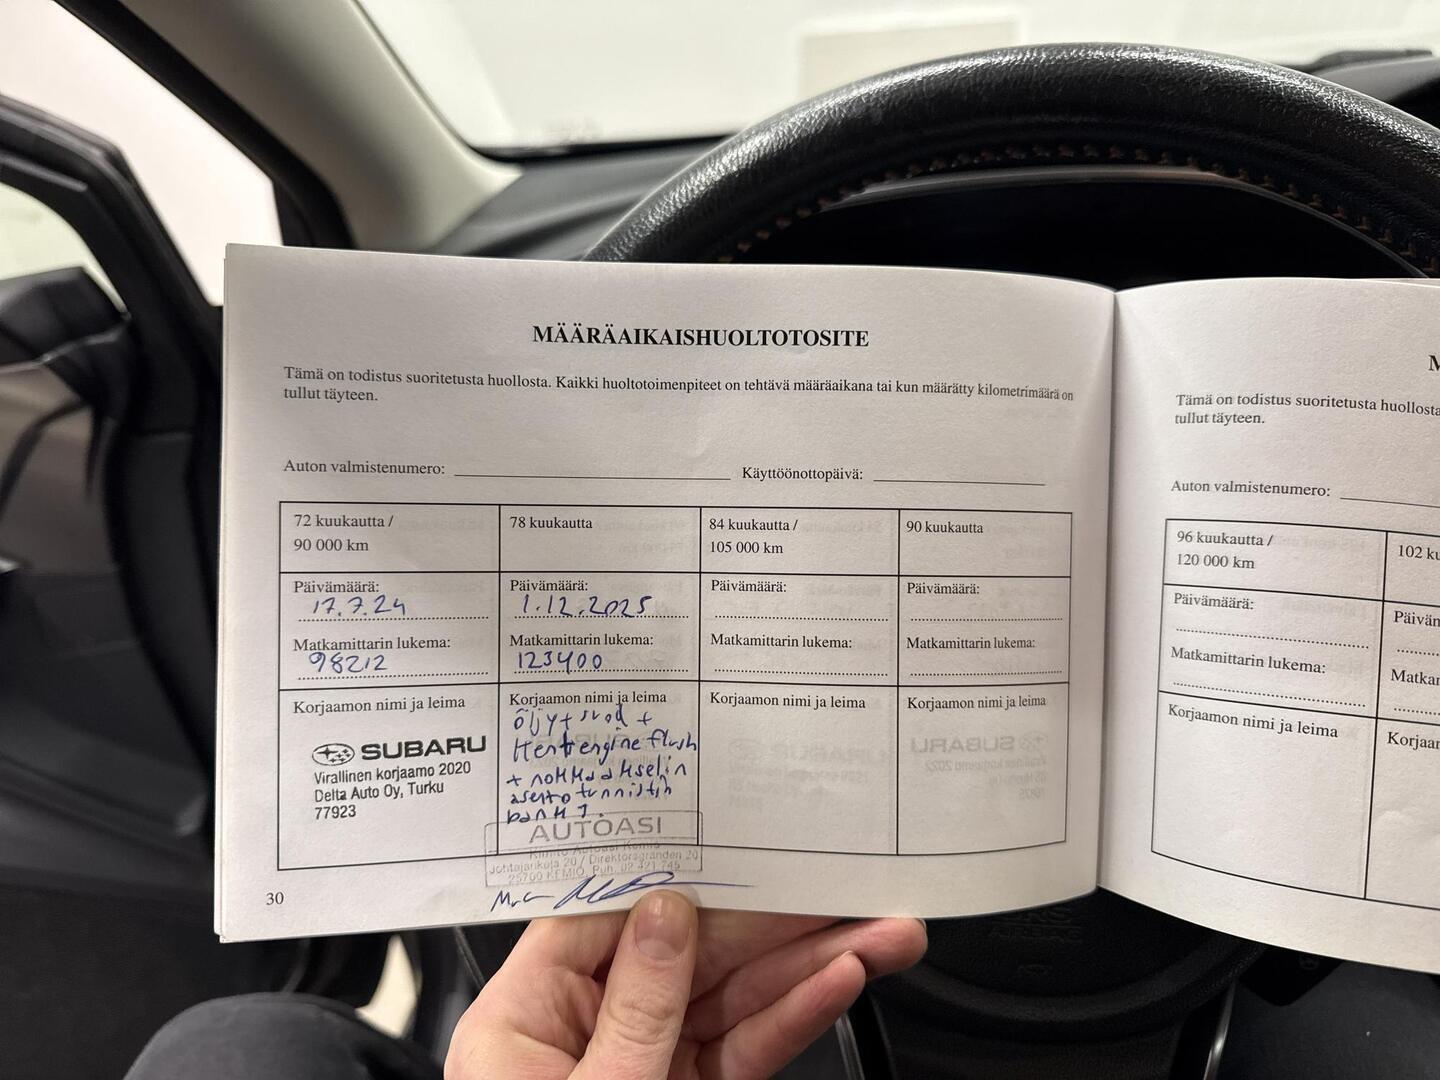 MÄÄRÄAIKAISHUOLTOTOSITE
Tämä on todistus suoritetusta huollosta. Kaikki huoltotoimenpiteet on tehtävä määräaikana tai kun määrätty kilometrimäärä on
tullut täyteen.
Auton valmistenumero:
Käyttöönottopäivä:
72 kuukautta /
90 000 km
Päivämäärä:
17.7.24
Matkamittarin lukema:
98212
Korjaamon nimi ja leima
SUBARU
Virallinen korjaamo 2020
Delta Auto Oy, Turku
77923
78 kuukautta
Päivämäärä:
1.12.2025
Matkamittarin lukema:
123400
Korjaamon nimi ja leima
öljy + suod +
engine flush
+
AUTOASI
Johtajankuja 20 / Direktörsgränden 20
25700 KEMIÖ, Puh. 02 421 745
84 kuukautta /
105 000 km
Päivämäärä:
Matkamittarin lukema:
Korjaamon nimi ja leima
90 kuukautta
Päivämäärä:
Matkamittarin lukema:
Korjaamon nimi ja leima
30
Tämä on todistus suoritetusta huollosta
tullut täyteen.
Auton valmistenumero:
96 kuukautta /
120 000 km
Päivämäärä:
Matkamittarin lukema:
Korjaamon nimi ja leima
102 ku
Päiväm
Matkar
Korjaar